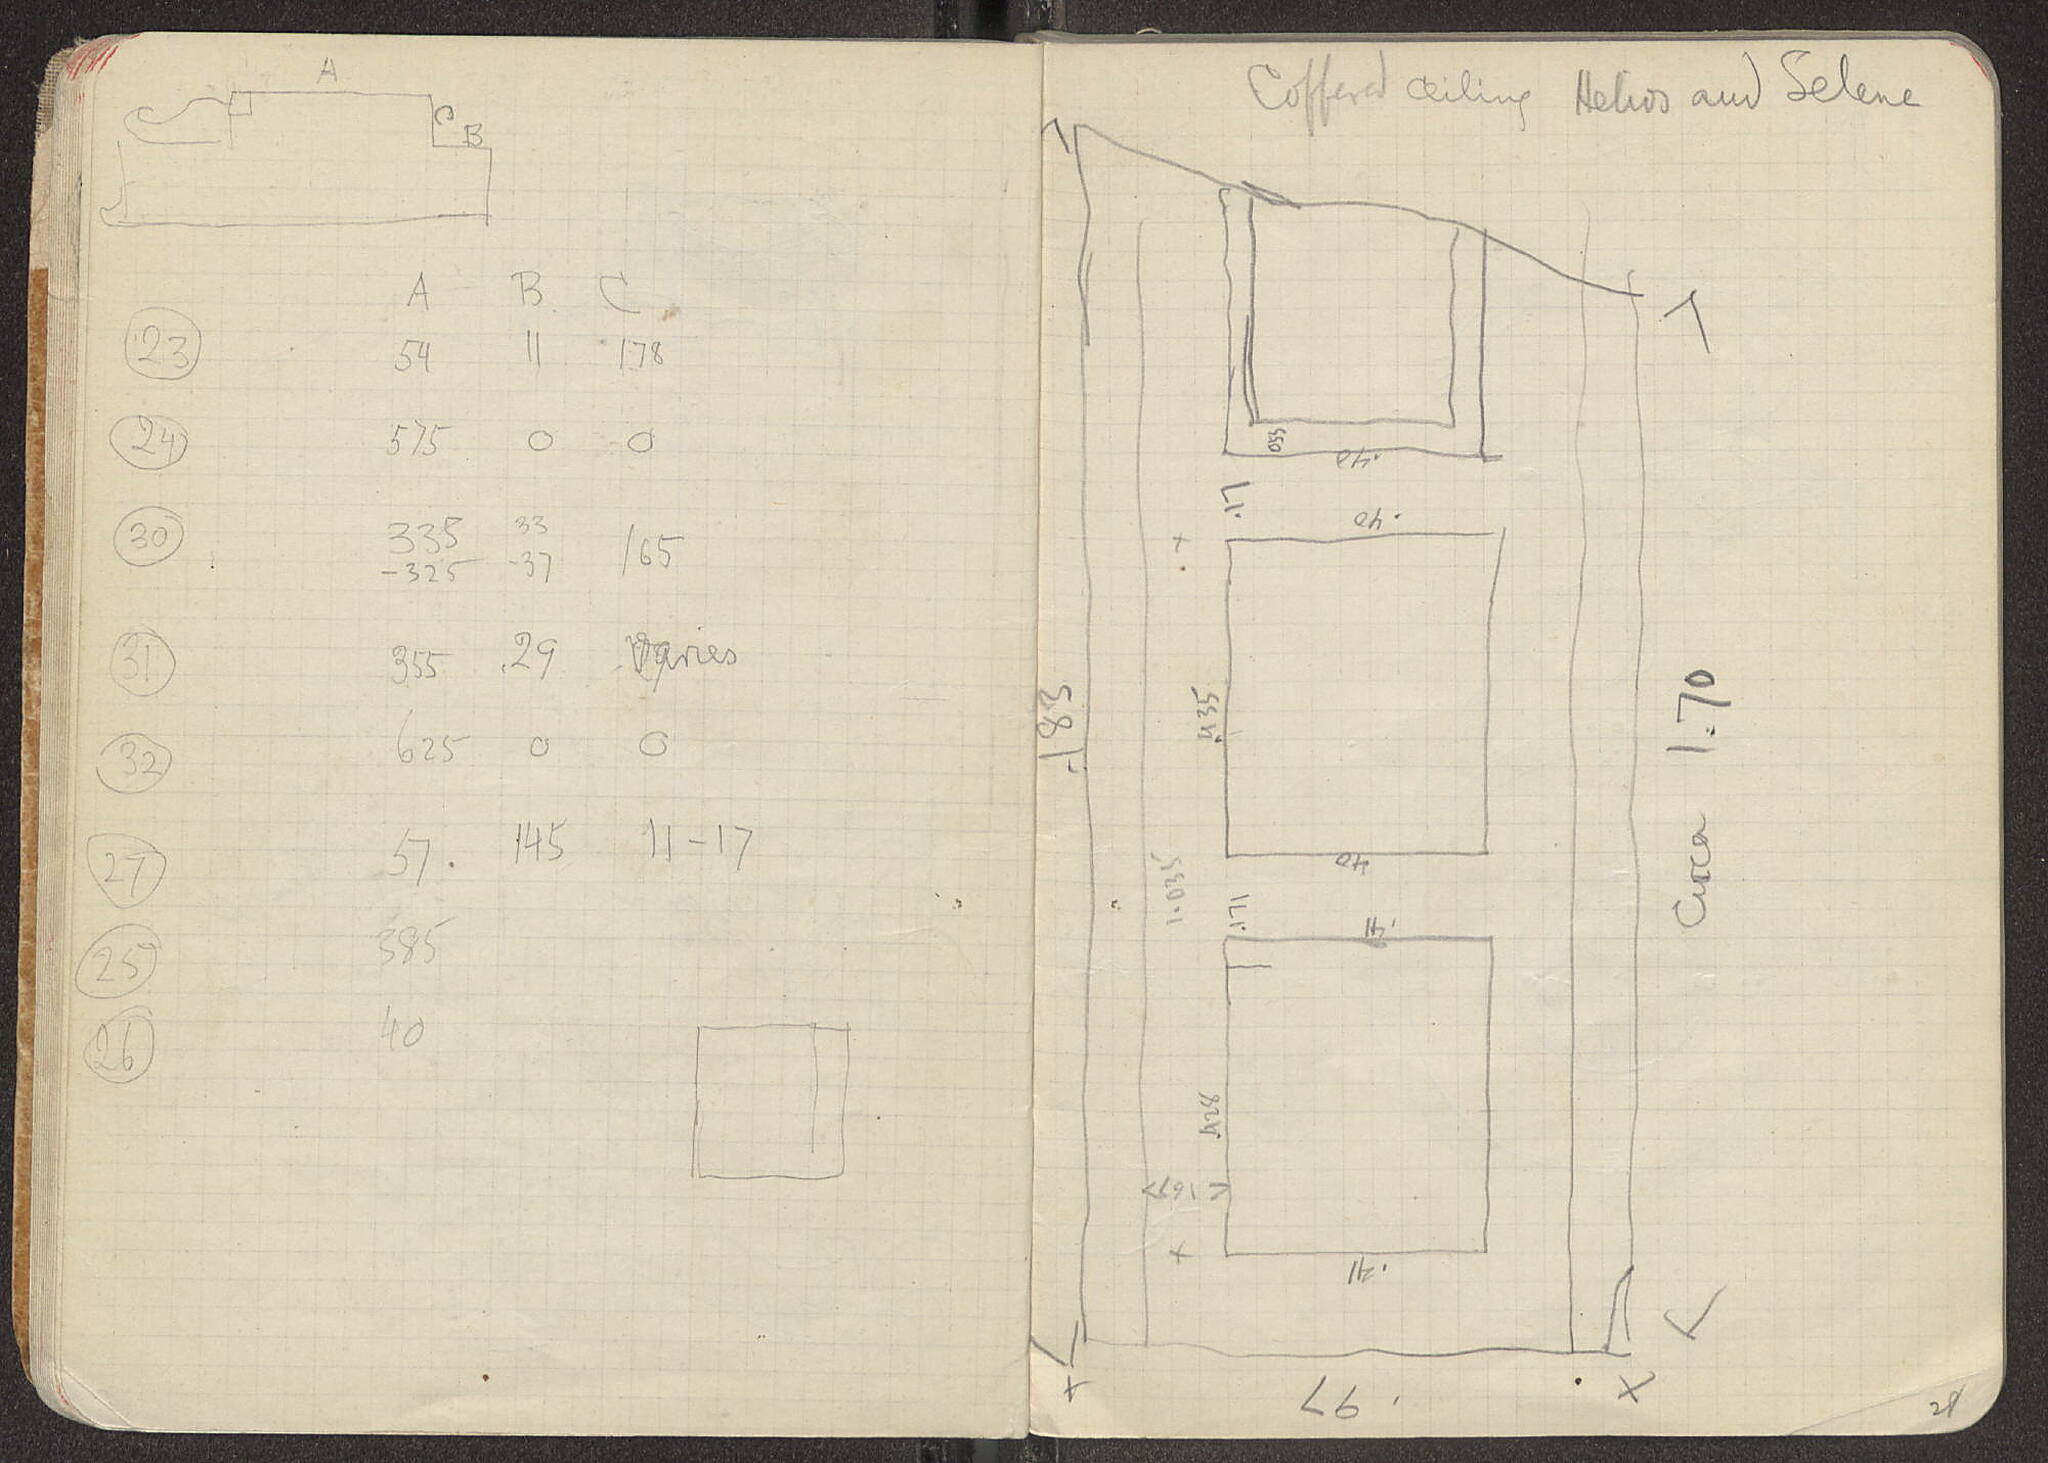 A
C
B
A B C
23 54 11 178
24 575 0 0
30 335 33 165
-325 -37
31 355 .29 Varies
32 625 0 0
27 57. 145 11-17
25 385
26 40
Coffered ceiling Helios and Selene
.055
.40
.17
.40
+
.435
1.83
Circa 1.70
1.035
.40
.171
.41
.428
<.167>
+
.41
+ .97 x
28